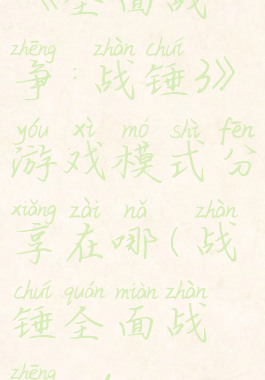 《全面战
zhēng zhàn chuí
争：战锤3》
yóu xì mó shì fēn
游戏模式分
xiǎng zài nǎ zhàn
享在哪(战
chuí quán miàn zhàn
锤全面战
zhēng